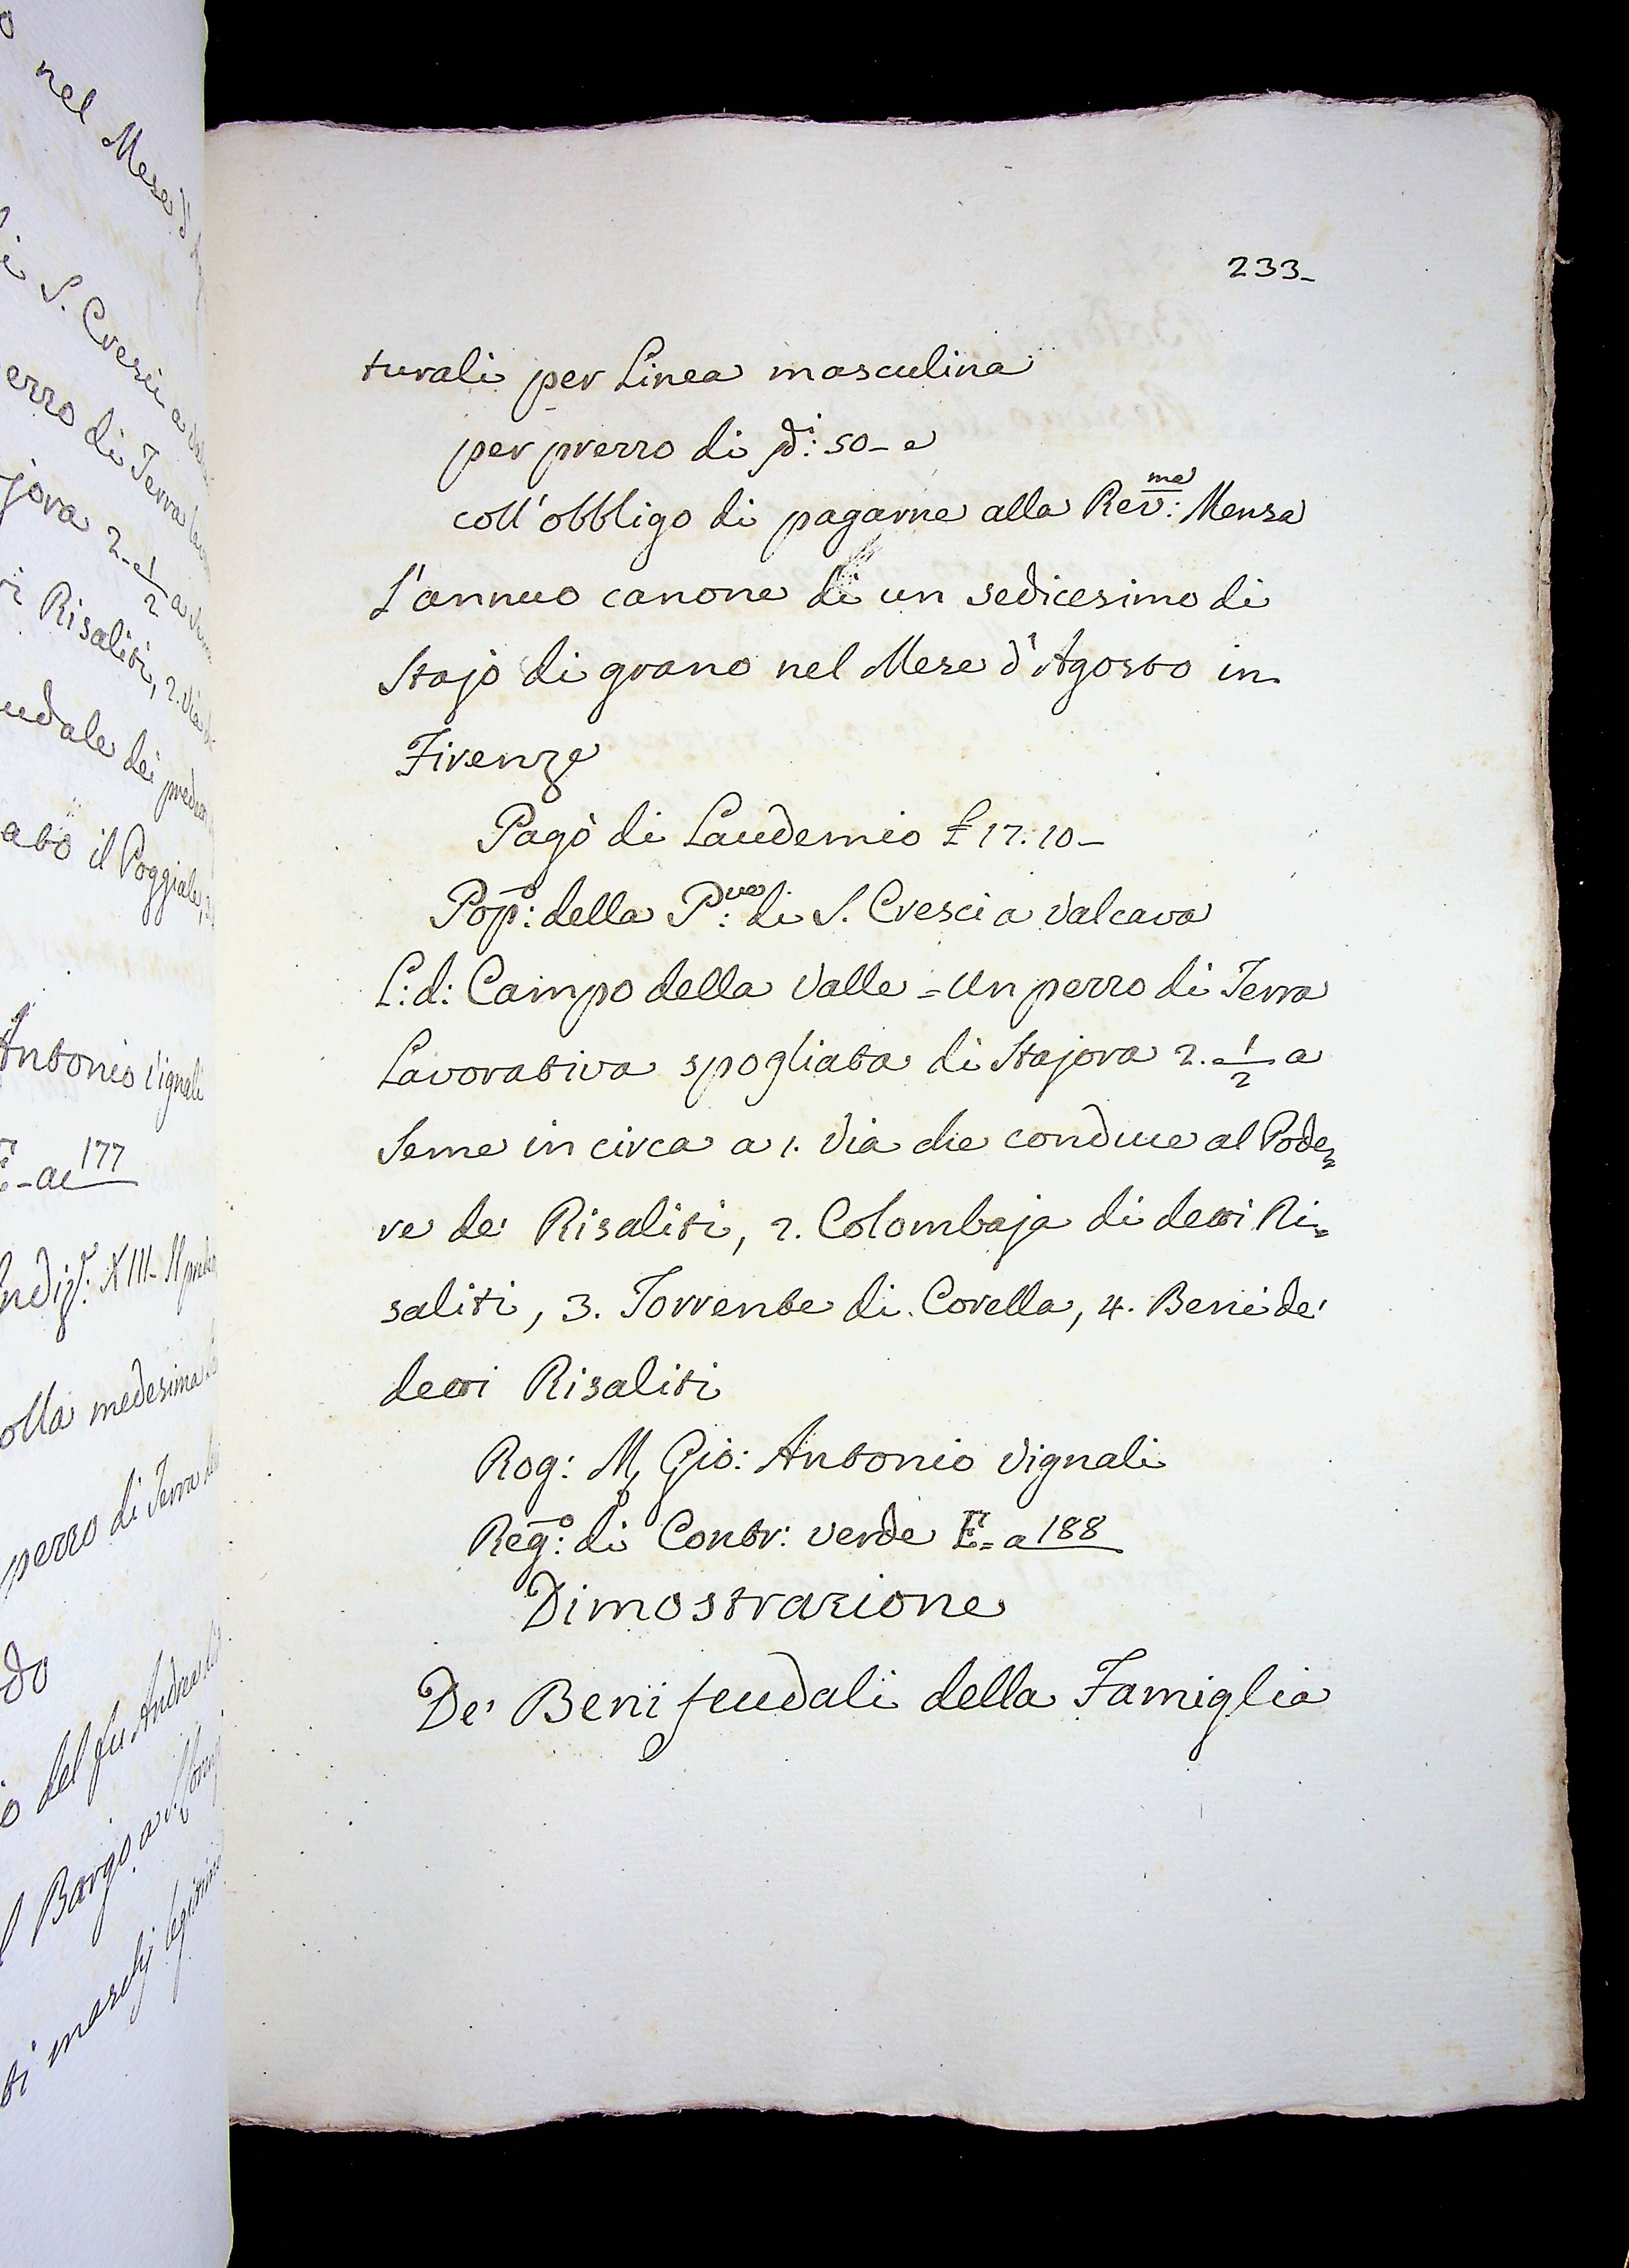 nel Mese d'
S. Cresci a
erro di Terra
jora 2 1/2 a
Risaliti, 2. Via
udale dei
ato il Poggiale,
Antonio Vignali
177
Indiz.: XIII-
olla medesima
pezzo di Terra
do
o del fu Andrea
Borgo a S.
ti maschj legitimi
233_
turali per Linea masculina
per prezzo di ∂i: 50_ e
coll'obbligo di pagarne alla Rev:ma Mensa
L'annuo canone di un sedicesimo di
Stajo di grano nel Mese d'Agosto in
Firenze
Pagò di Laudemio £ 17.10_
Pop:o della P:ve di S. Cresci a Valcava
L: d: Campo della Valle = Un pezzo di Terra
Lavorativa spogliata di Stajora 2. 1/2 a
Seme in circa a 1. Via che conduce al Pode=
re de' Risaliti, 2. Colombaja di detti Ri=
saliti, 3. Torrente di Corella, 4. Beni de'
detti Risaliti
Rog: M, Gio: Antonio Vignali
Reg:o di Contr: verde E= a 188
Dimostrazione
De' Beni feudali della Famiglia